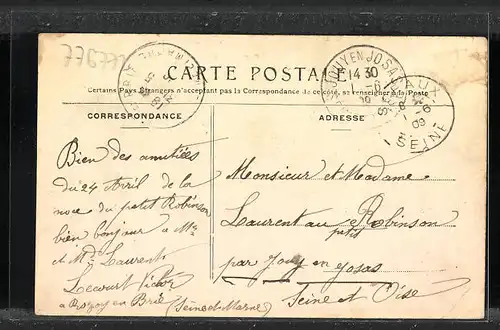 776777
CARTE POSTALE
Certains Pays Etrangers n'acceptant pas la Correspondance de ce côté, se renseigner à la Poste
CORRESPONDANCE
ADRESSE
JOUY EN JOSAS
14 30
SEINE
Bien des amitiées
du 24 Avril de la
noce du petit Robinson
bien bonjour a Mr
et Md Laurent
Lecourt Victor
a Rozoy en Brie
(Seine et Marne)
Monsieur et Madame
Laurent au Robinson
petit
par Jouy en Josas
Seine et Oise